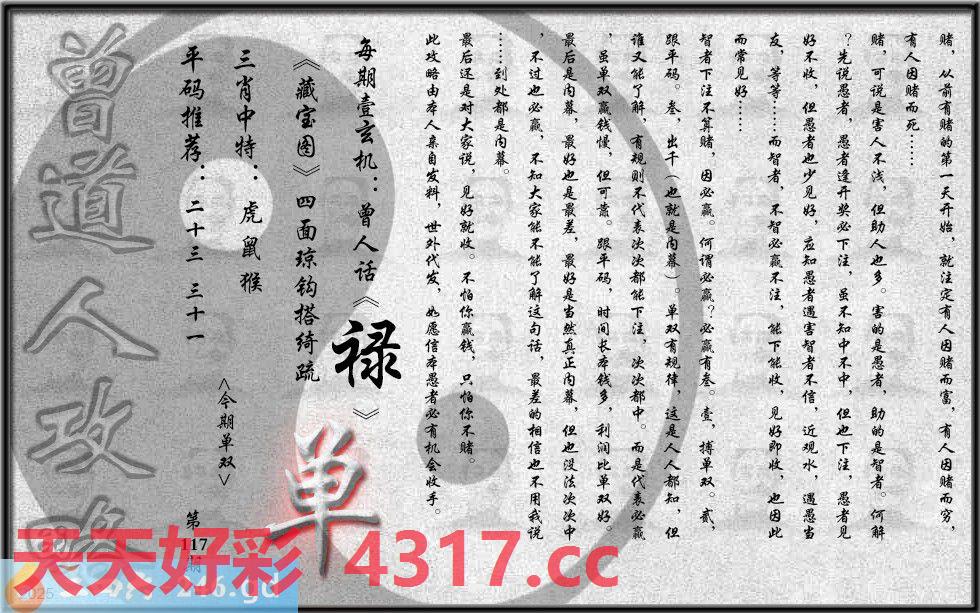 赌，从前有赌的第一天开始，就注定有人因赌而富，有人因赌而穷，
有人因赌而死……
赌，可说是害人不浅，但助人也多。害的是愚者，助的是智者。何解
？先说愚者，愚者逢开奖必下注，虽不知中不中，但也下注，愚者见
好不收，但愚者也少见好，应知愚者遇害智者不信，近观水，遇愚当
友，等等……而智者，不智必赢不注，能下能收，见好即收，也因此
而常见好……
智者下注不算赌，因必赢。何谓必赢？必赢有叁。壹，搏单双。贰，
跟平码。叁，出千（也就是内幕）。单双有规律，这是人人都知，但
谁又能了解，有规则不代表次次都能下注，次次都中。而是代表必赢
，虽单双赢钱慢，但可靠。跟平码，时间长本钱多，利润比单双好。
最后是内幕，最好也是最差，最好是当然真正内幕，但也没法次次中
，不过也必赢，不知大家能不能了解这句话，最差的相信也不用我说
……到处都是内幕。
最后还是对大家说，见好就收。不怕你赢钱，只怕你不赌。
此攻略由本人亲自发料，世外代发，如愿信本愚者必有机会收手。
每期壹玄机：曾人话《禄》
《藏宝图》四面琼钩搭绮疏
三肖中特：虎鼠猴
<今期单双>
单
平码推荐：二十三 三十一
第
117
期
曾道人攻略
天天好彩 4317.cc
2025